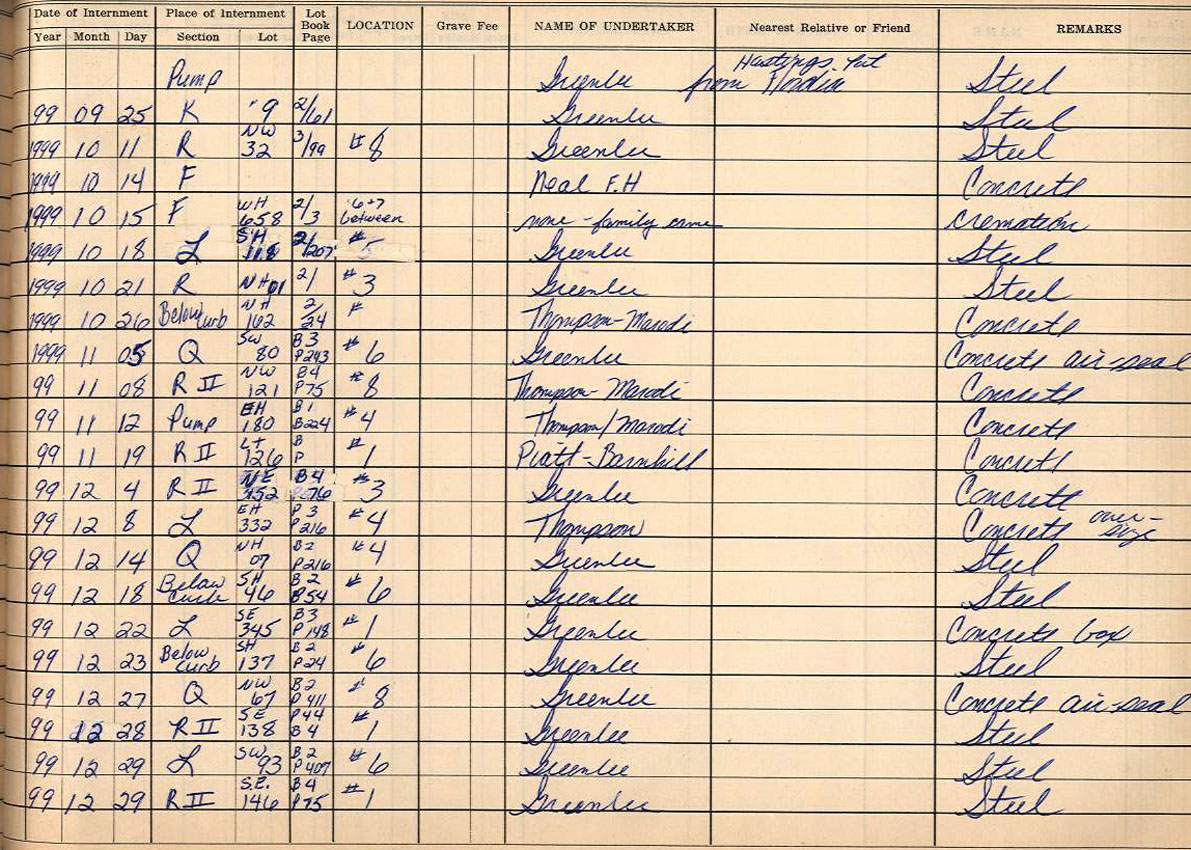 Date of Internment Place of Internment Lot Book Page LOCATION Grave Fee NAME OF UNDERTAKER Nearest Relative or Friend REMARKS
Year Month Day Section Lot
Pump Greenlee from Florida Hastings Steel
99 09 25 K 9 2/161 Greenlee Steel
1999 10 11 R NW 32 3/99 #8 Greenlee Steel
1999 10 14 F Neal F.H Concrete
1999 10 15 F WH 658 2/3 6+7 between none - family came cremation
1999 10 18 L SH 118 2/207 #5 Greenlee Steel
1999 10 21 R NH 01 2/ #3 Greenlee Steel
1999 10 26 Below Curb NH 162 2/24 # Thompson-Marodi Concrete
1999 11 05 Q SW 80 B3 P243 #6 Greenlee Concrete air-seal
99 11 08 R II NW 121 B4 P75 #8 Thompson-Marodi Concrete
99 11 12 Pump EH 180 B1 B224 #4 Thompson/Marodi Concrete
99 11 19 R II Lt 126 B P #1 Piatt-Barnhill Concrete
99 12 4 R II NE 152 B4 P76 #3 Greenlee Concrete
99 12 8 L EH 332 P3 P216 #4 Thompson Concrete over-size
99 12 14 Q NH 07 B2 P216 #4 Greenlee Steel
99 12 18 Below Curb SH 46 B2 B54 #6 Greenlee Steel
99 12 22 L SE 345 B3 P148 #1 Greenlee Concrete box
99 12 23 Below Curb SH 137 B2 P24 #6 Greenlee Steel
99 12 27 Q NW 67 B2 P411 #8 Greenlee Concrete air-seal
99 12 28 R II SE 138 P44 B4 #1 Greenlee Steel
99 12 29 L SW 93 B2 P407 #6 Greenlee Steel
99 12 29 R II S.E. 146 B4 P75 #1 Greenlee Steel